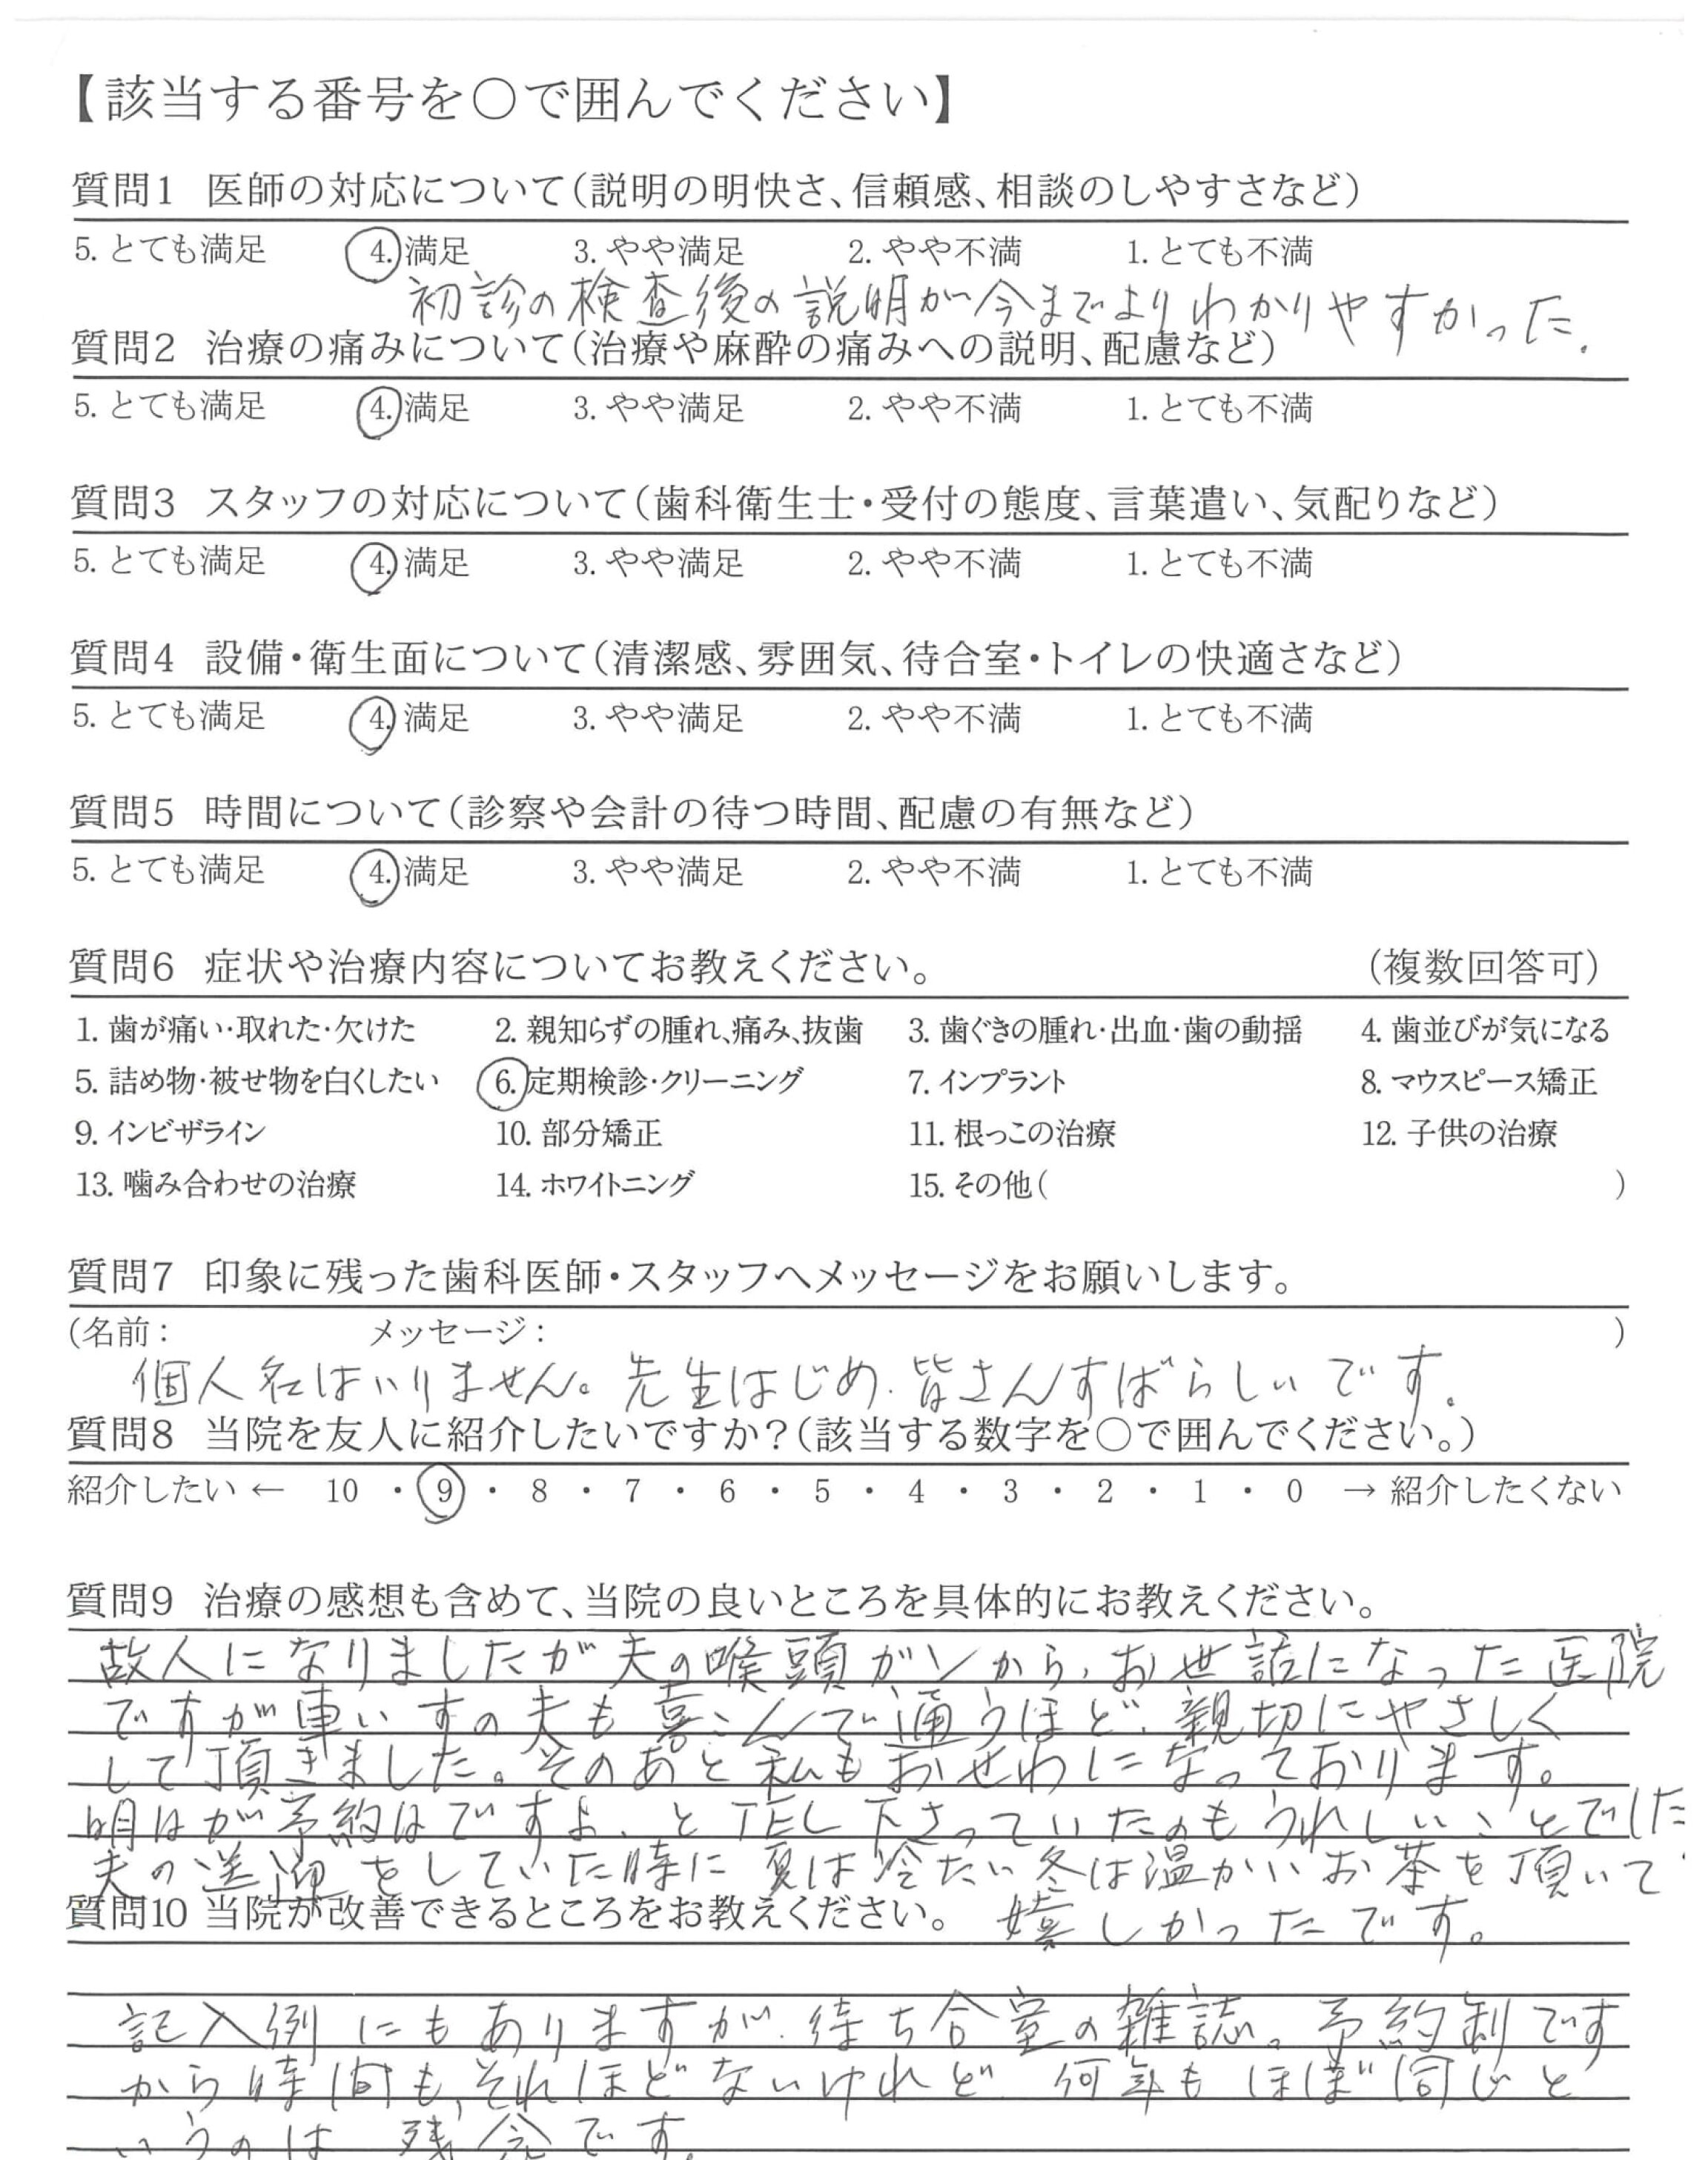 【該当する番号を○で囲んでください】
質問1 医師の対応について(説明の明快さ、信頼感、相談のしやすさなど)
5. とても満足 4. 満足 3. やや満足 2. やや不満 1. とても不満
初診の検査後の説明が今までよりわかりやすかった.
質問2 治療の痛みについて(治療や麻酔の痛みへの説明、配慮など)
5. とても満足 4. 満足 3. やや満足 2. やや不満 1. とても不満
質問3 スタッフの対応について(歯科衛生士・受付の態度、言葉遣い、気配りなど)
5. とても満足 4. 満足 3. やや満足 2. やや不満 1. とても不満
質問4 設備・衛生面について(清潔感、雰囲気、待合室・トイレの快適さなど)
5. とても満足 4. 満足 3. やや満足 2. やや不満 1. とても不満
質問5 時間について(診察や会計の待つ時間、配慮の有無など)
5. とても満足 4. 満足 3. やや満足 2. やや不満 1. とても不満
質問6 症状や治療内容についてお教えください。 (複数回答可)
1. 歯が痛い・取れた・欠けた 2. 親知らずの腫れ、痛み、抜歯 3. 歯ぐきの腫れ・出血・歯の動揺 4. 歯並びが気になる
5. 詰め物・被せ物を白くしたい 6. 定期検診・クリーニング 7. インプラント 8. マウスピース矯正
9. インビザライン 10. 部分矯正 11. 根っこの治療 12. 子供の治療
13. 噛み合わせの治療 14. ホワイトニング 15. その他( )
質問7 印象に残った歯科医師・スタッフへメッセージをお願いします。
(名前: メッセージ: )
個人名はいりません。先生はじめ、皆さんすばらしいです.
質問8 当院を友人に紹介したいですか?(該当する数字を○で囲んでください。)
紹介したい ← 10 ・ 9 ・ 8 ・ 7 ・ 6 ・ 5 ・ 4 ・ 3 ・ 2 ・ 1 ・ 0 → 紹介したくない
質問9 治療の感想も含めて、当院の良いところを具体的にお教えください。
故人になりましたが夫の喉頭ガンから、お世話になった医院
ですが車いすの夫も喜こんで通うほど、親切にやさしく
して頂きました。そのあと私もおせわになっております。
明日が予約日ですよ、と TEL 下さっていたのもうれしいことでした
夫の送迎をしていた時に夏は冷たい冬は温かいお茶を頂いて
質問10 当院が改善できるところをお教えください。 嬉しかったです。
記入例にもありますが、待ち合室の雑誌。予約制です
から時間も、それほどないけれど 何年もほぼ同じと
いうのは 残念です.